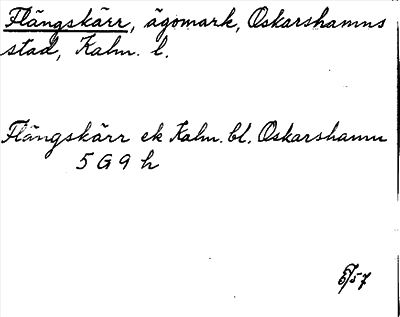 Flängskärr, ägomark, Oskarshamns
stad, Kalm. l.
Flängskärr ek Kalm. bl. Oskarshamn
5 G 9 h